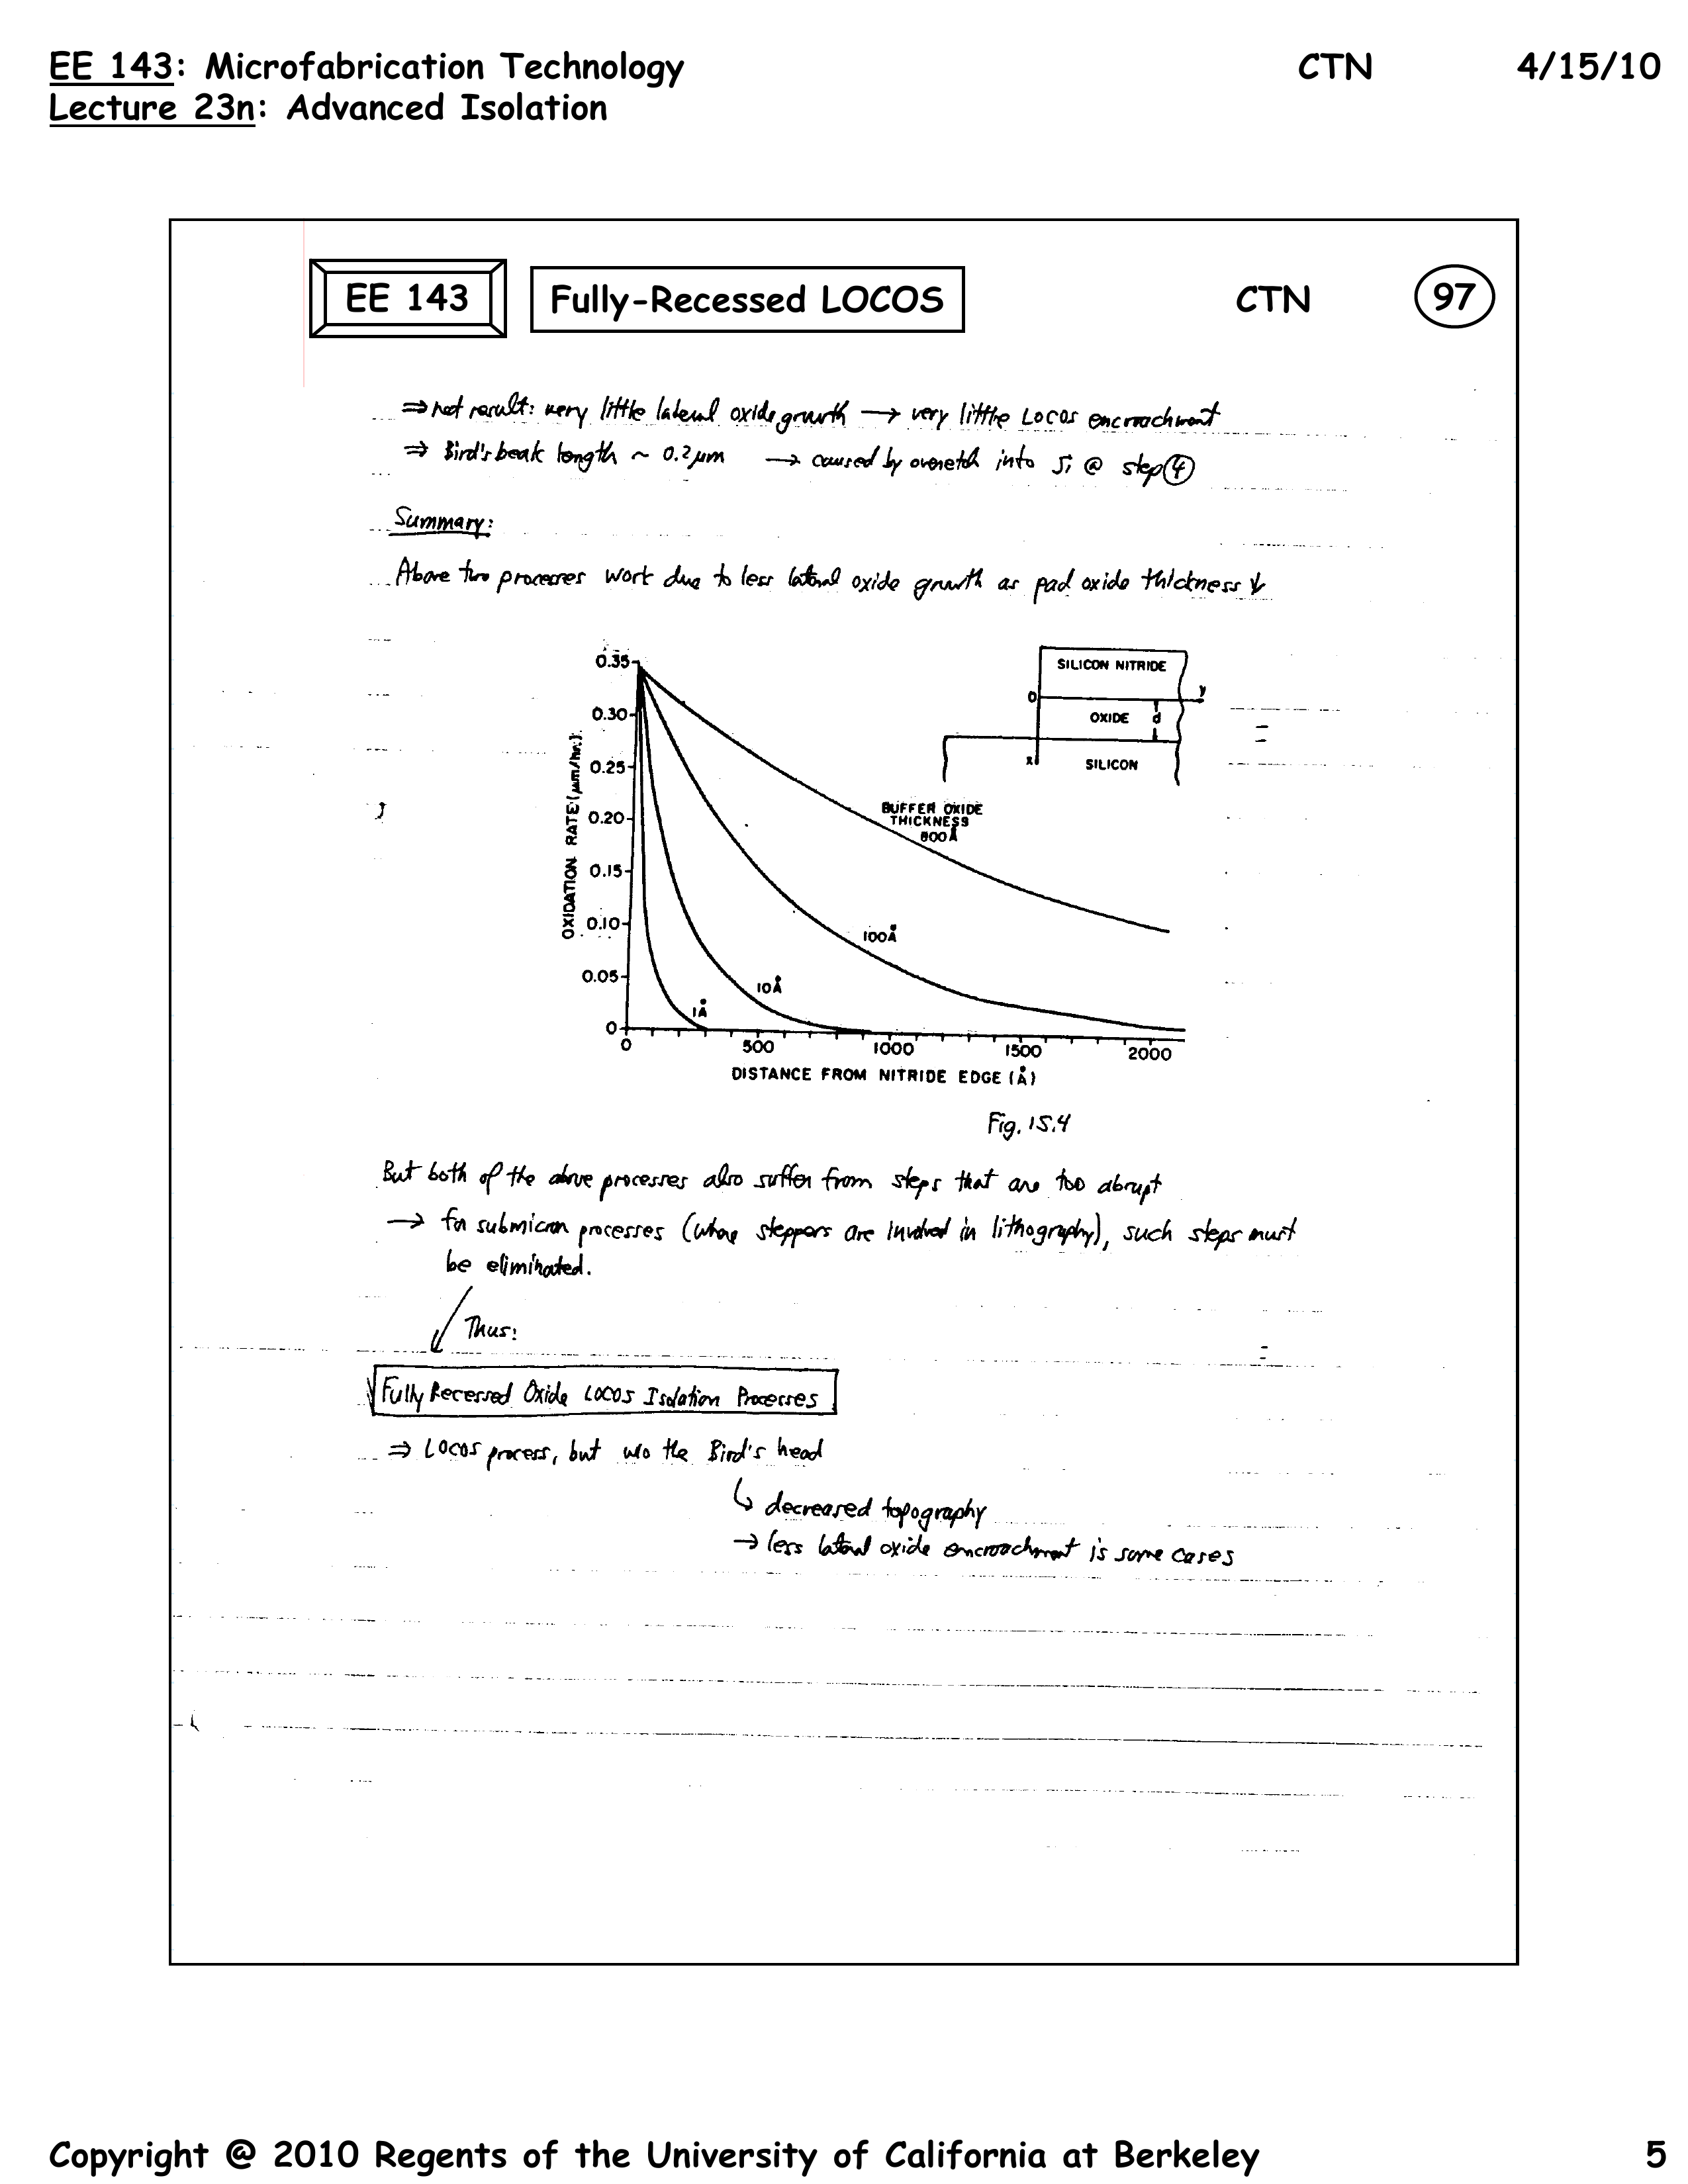 EE 143: Microfabrication Technology CTN 4/15/10
Lecture 23n: Advanced Isolation
EE 143 Fully-Recessed LOCOS CTN 97
⇒ net result: very little lateral oxide growth → very little LOCOS encroachment
⇒ Bird's beak length ~ 0.2μm → caused by overetch into Si @ step ④
Summary:
Above two processes work due to less lateral oxide growth as pad oxide thickness ↓
0.35
0.30
0.25
0.20
0.15
0.10
0.05
0
OXIDATION RATE (μm/hr.)
SILICON NITRIDE
0 y
OXIDE d
x SILICON
BUFFER OXIDE
THICKNESS
500Å
100Å
10Å
1Å
0 500 1000 1500 2000
DISTANCE FROM NITRIDE EDGE (Å)
Fig. 15.4
But both of the above processes also suffer from steps that are too abrupt
→ for submicron processes (where steppers are involved in lithography), such steps must
be eliminated.
Thus:
Fully Recessed Oxide LOCOS Isolation Processes
⇒ LOCOS process, but w/o the Bird's head
↳ decreased topography
→ less lateral oxide encroachment is some cases
Copyright @ 2010 Regents of the University of California at Berkeley 5